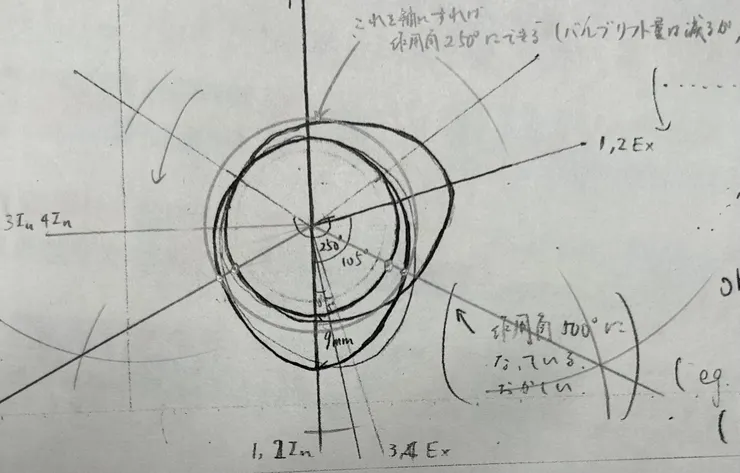 これを軸にすれば
作用角250°にできる (バルブリフト量は減るが,
1,2Ex
3In 4In
250°
105°
9mm
作用角500°に
なっている
おかしい
(eg.
(
1,2In
3,4Ex